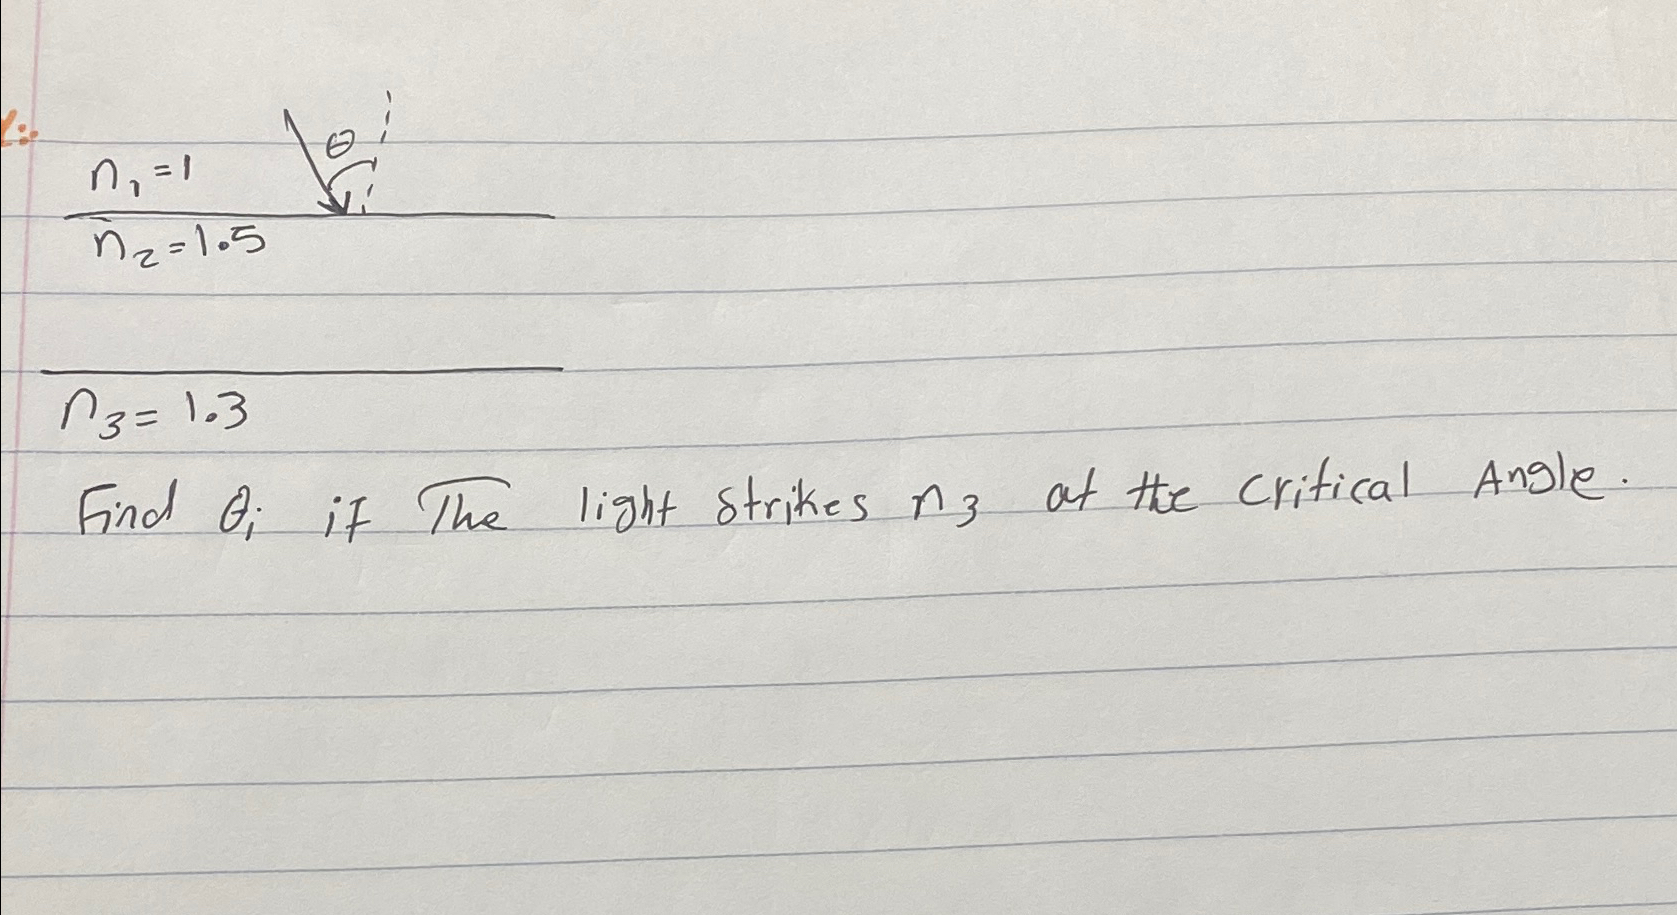 θ
n₁ = 1
n₂ = 1.5
n₃ = 1.3
Find θi if The light strikes n₃ at the critical Angle.